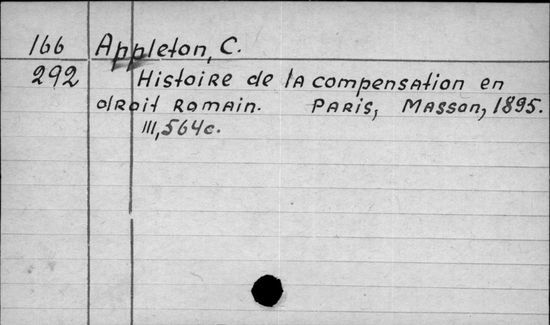 166 Appleton, C.
292 Histoire de la compensation en
droit romain. Paris, Masson, 1895.
III, 564c.